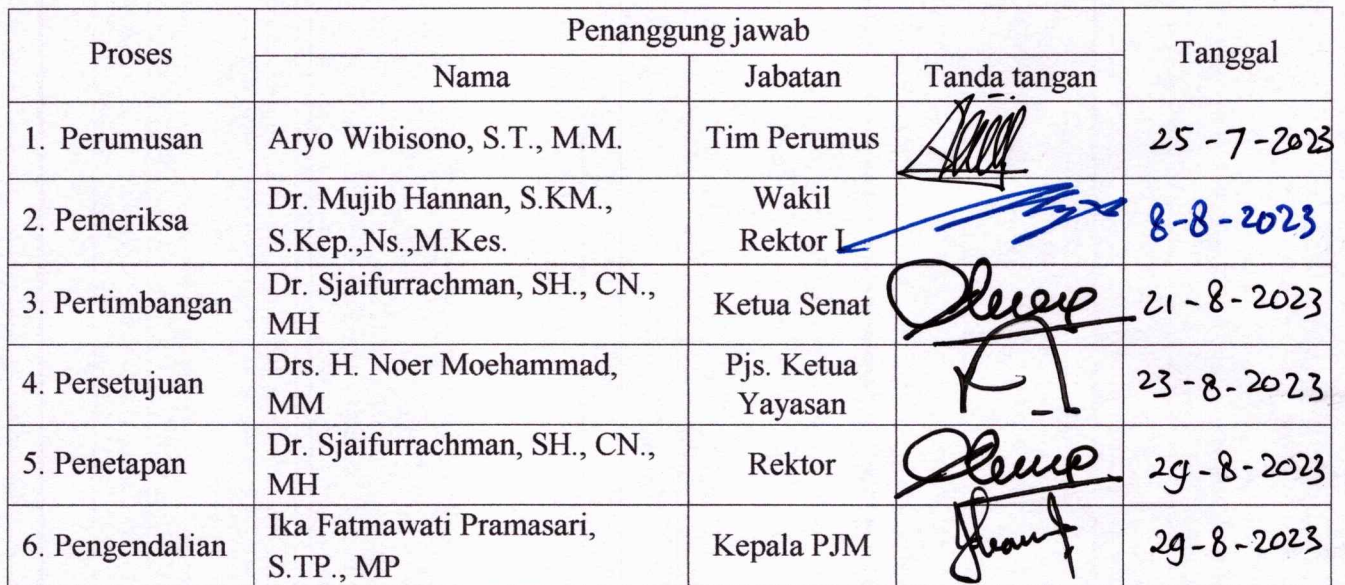 Proses
Penanggung jawab
Tanggal
Nama
Jabatan
Tanda tangan
1. Perumusan
Aryo Wibisono, S.T., M.M.
Tim Perumus
25-7-2023
2. Pemeriksa
Dr. Mujib Hannan, S.KM.,
S.Kep.,Ns.,M.Kes.
Wakil
Rektor I
8-8-2023
3. Pertimbangan
Dr. Sjaifurrachman, SH., CN.,
MH
Ketua Senat
21-8-2023
4. Persetujuan
Drs. H. Noer Moehammad,
MM
Pjs. Ketua
Yayasan
23-8-2023
5. Penetapan
Dr. Sjaifurrachman, SH., CN.,
MH
Rektor
29-8-2023
6. Pengendalian
Ika Fatmawati Pramasari,
S.TP., MP
Kepala PJM
29-8-2023